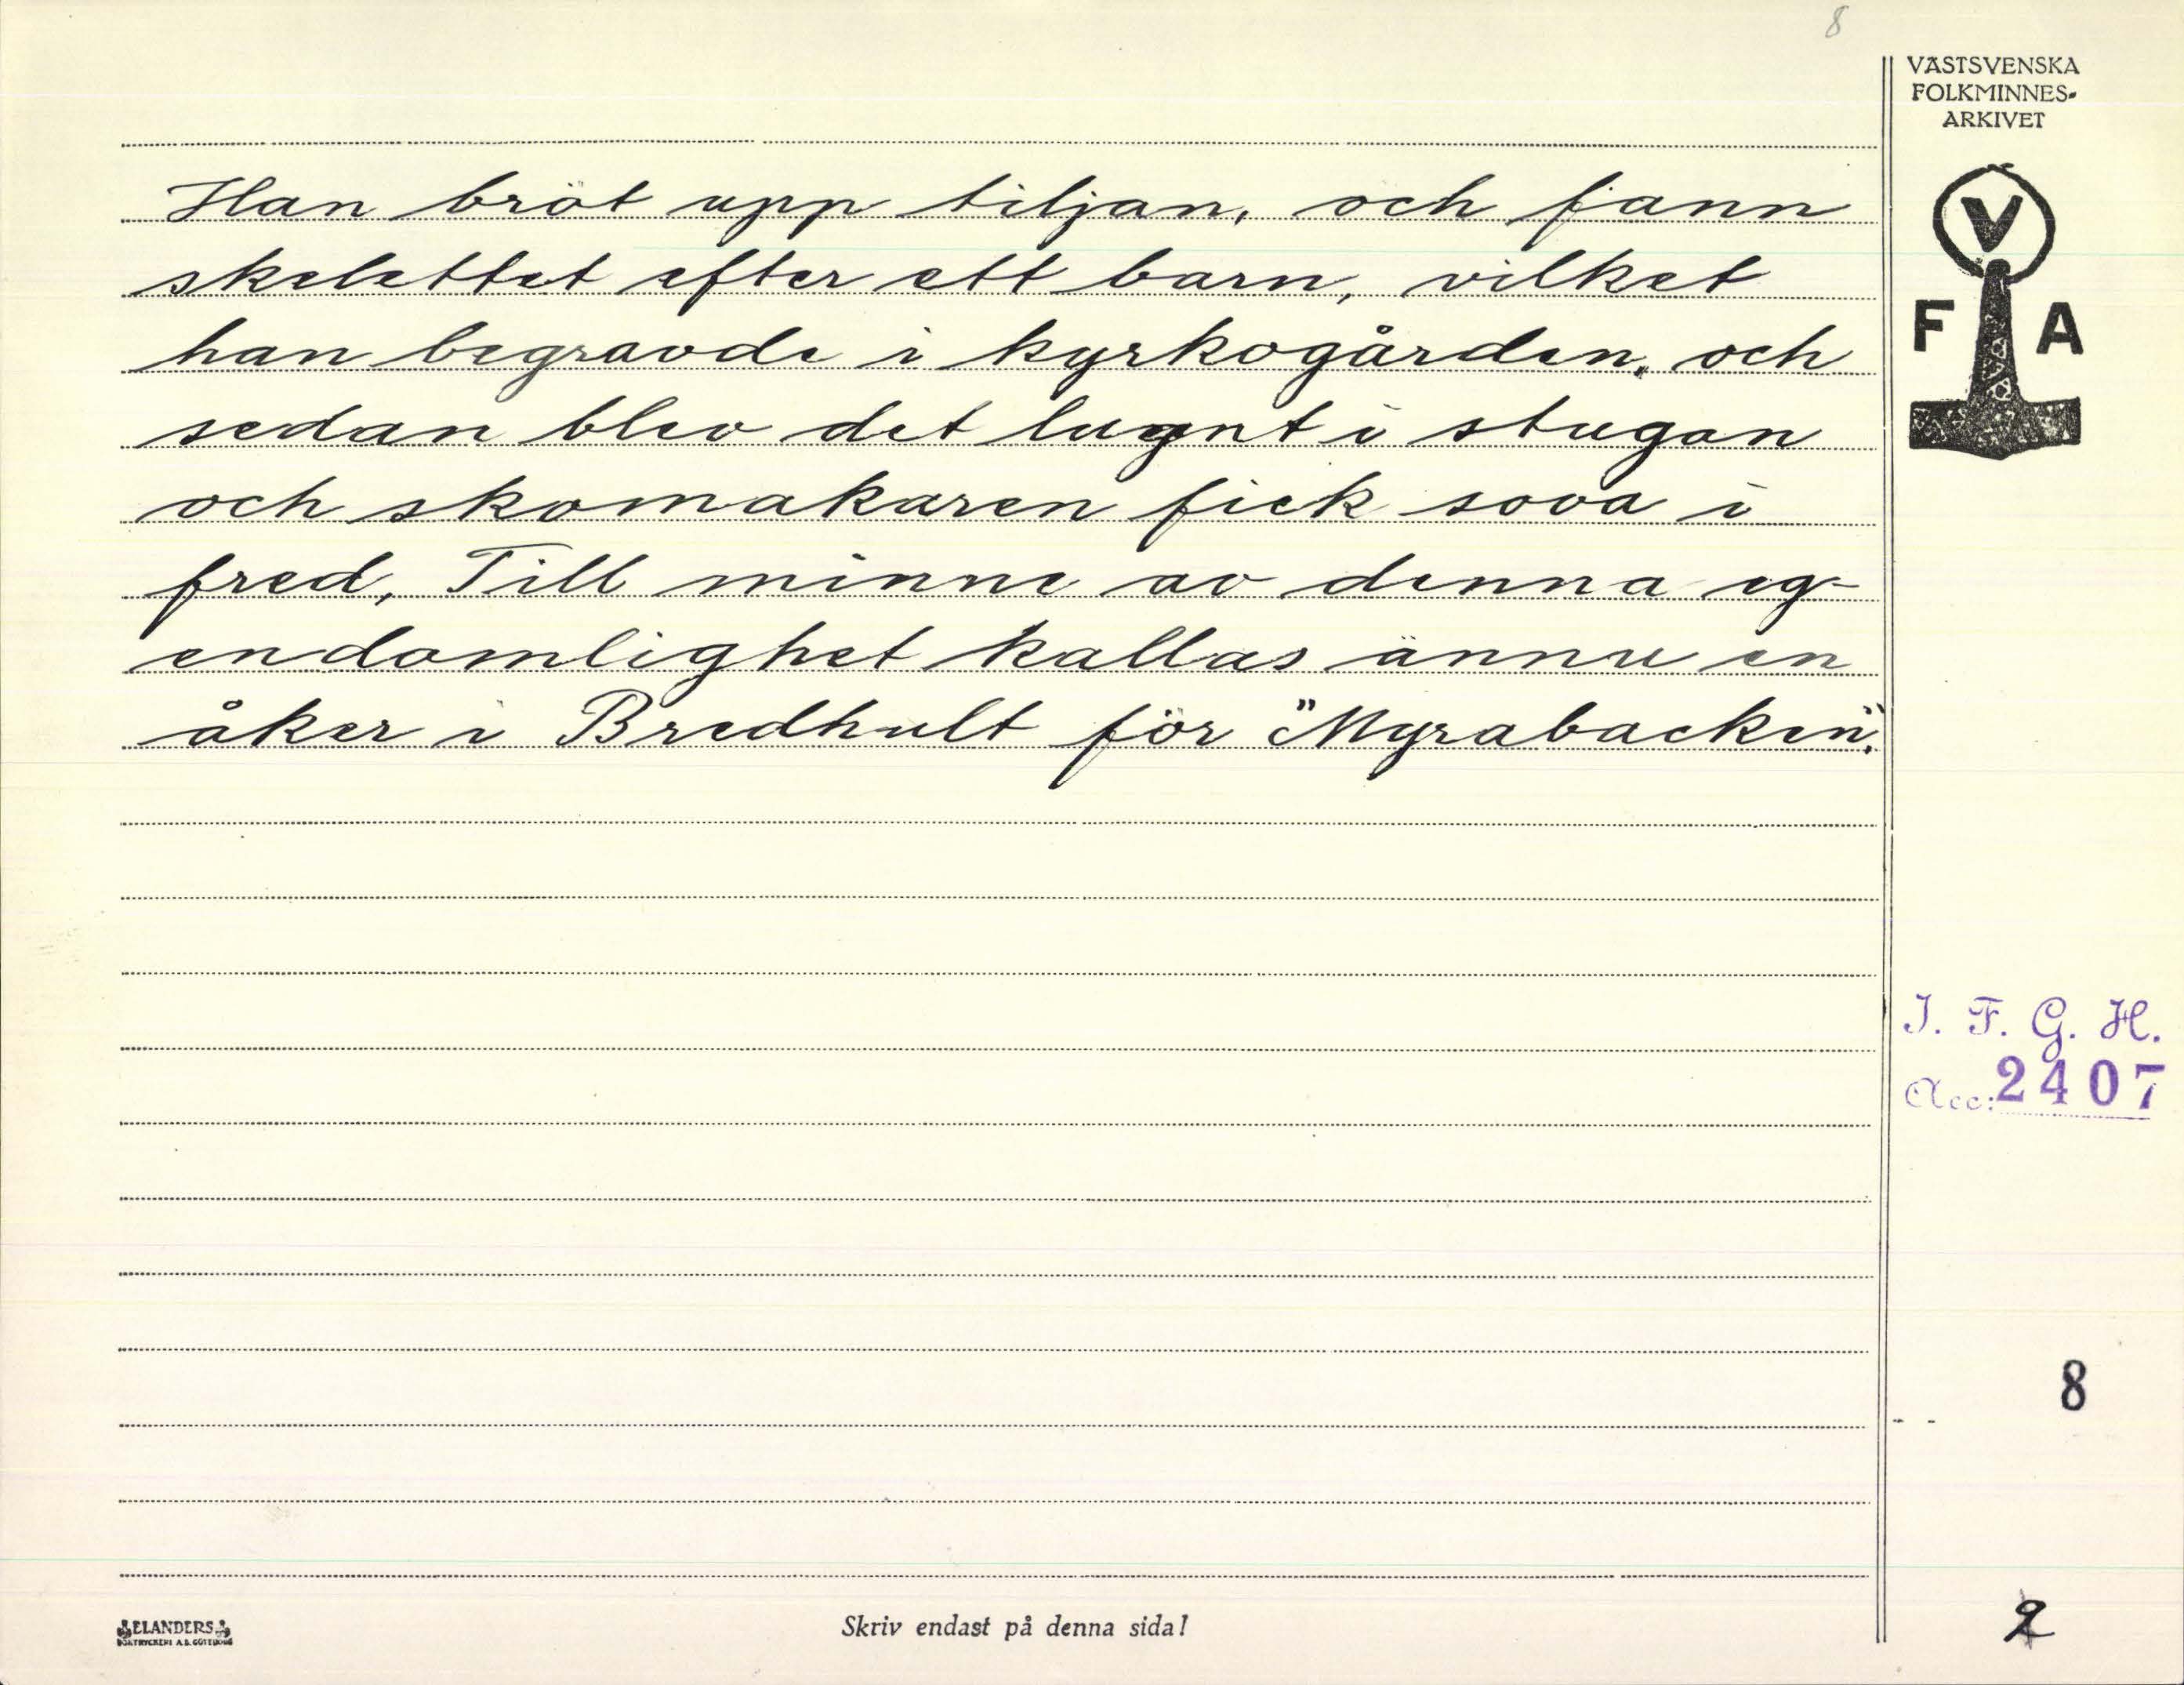 8
VÄSTSVENSKA
FOLKMINNES-
ARKIVET
Han bröt upp tiljan, och fann
skelettet efter ett barn, vilket
han begravde i kyrkogården, och
sedan blev det lugnt i stugan
och skomakaren fick sova i
fred, Till minne av denna eg-
endomlighet kallas ännu en
åker i Bredhult för "Myrabacken".
V
F A
I. F. G. H.
Acc: 2407
8
2
ELANDERS
BOKTRYCKERI A.B. GÖTEBORG
Skriv endast på denna sida!